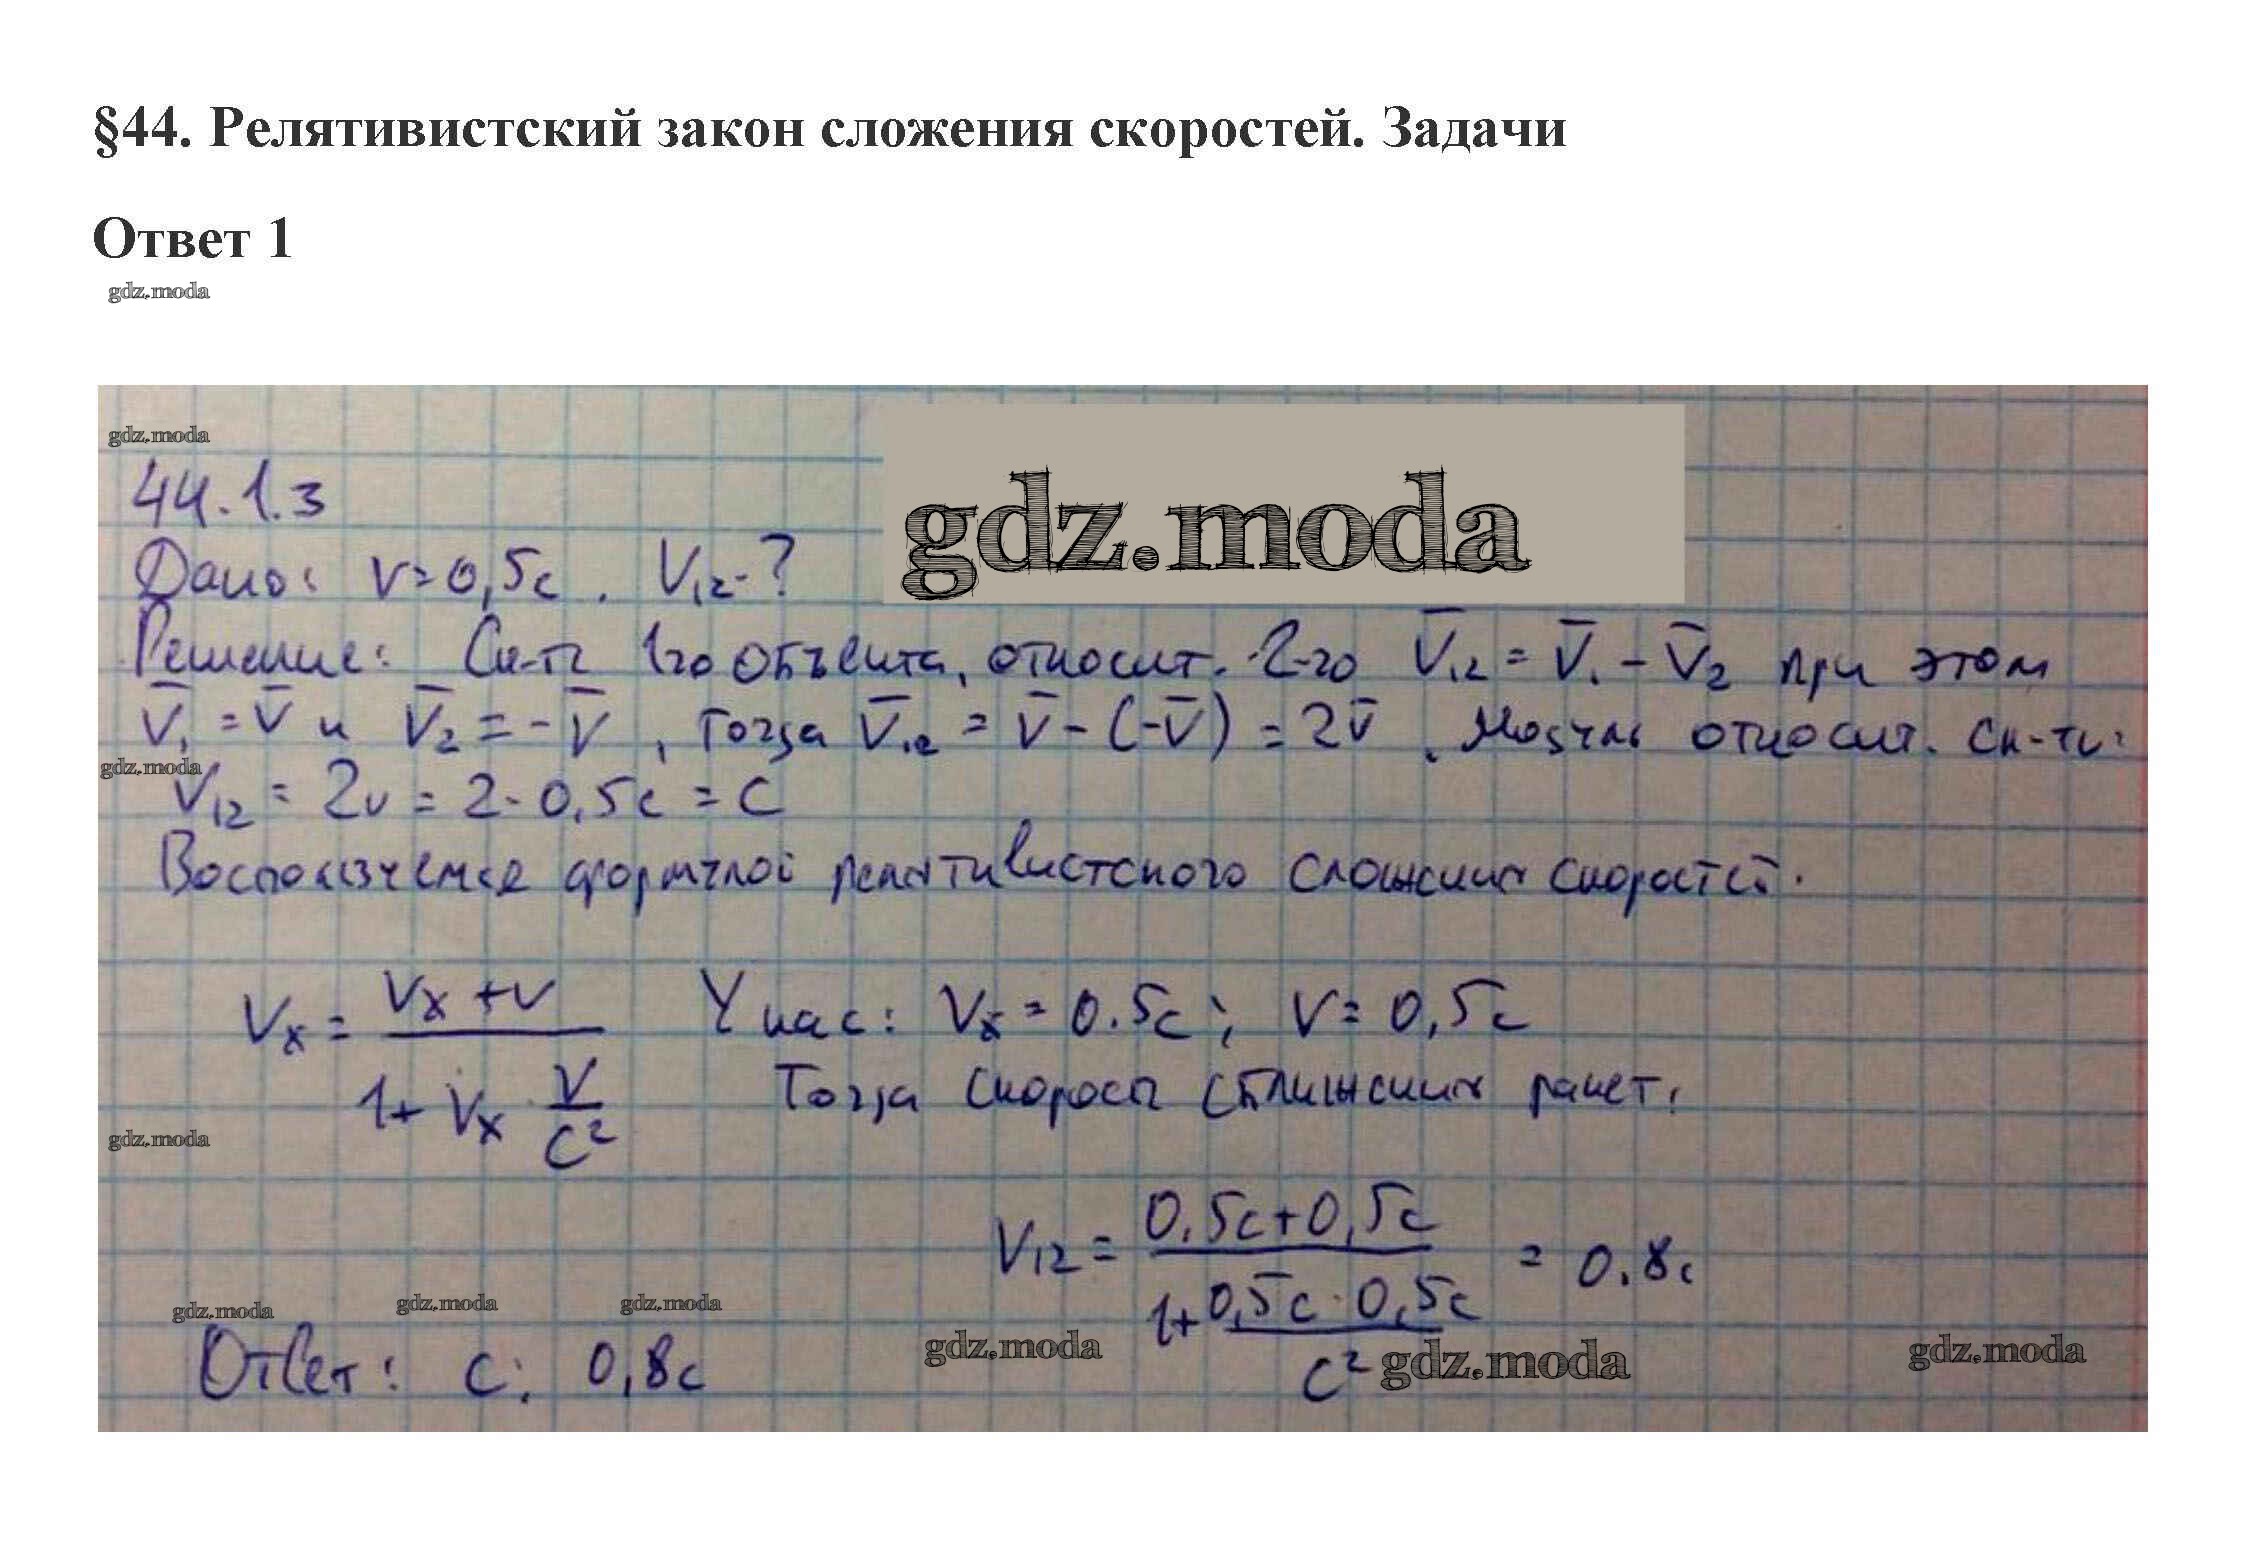 §44. Релятивистский закон сложения скоростей. Задачи
Ответ 1
gdz.moda
gdz.moda
gdz.moda
44.1.3
Дано: v=0,5c. V₁₂-?
Решение: Ск-ть 1го объекта, относит. 2-го V̄₁₂ = V̄₁ - V̄₂ при этом
V̄₁ = V̄ и V̄₂ = -V̄, тогда V̄₁₂ = V̄ - (-V̄) = 2V̄. Модуль относит. ск-ти:
gdz.moda
V₁₂ = 2v = 2·0,5c = c
Воспользуемся формулой релятивистского сложения скоростей.
Vₓ = (Vₓ + V) / (1 + Vₓ · V/c²) У нас: Vₓ = 0.5c; V = 0,5c
Тогда скорость сближения ракет:
gdz.moda
V₁₂ = (0,5c+0,5c) / (1 + (0,5c·0,5c)/c²) = 0,8c
gdz.moda gdz.moda gdz.moda
gdz.moda gdz.moda gdz.moda
Ответ: c; 0,8c